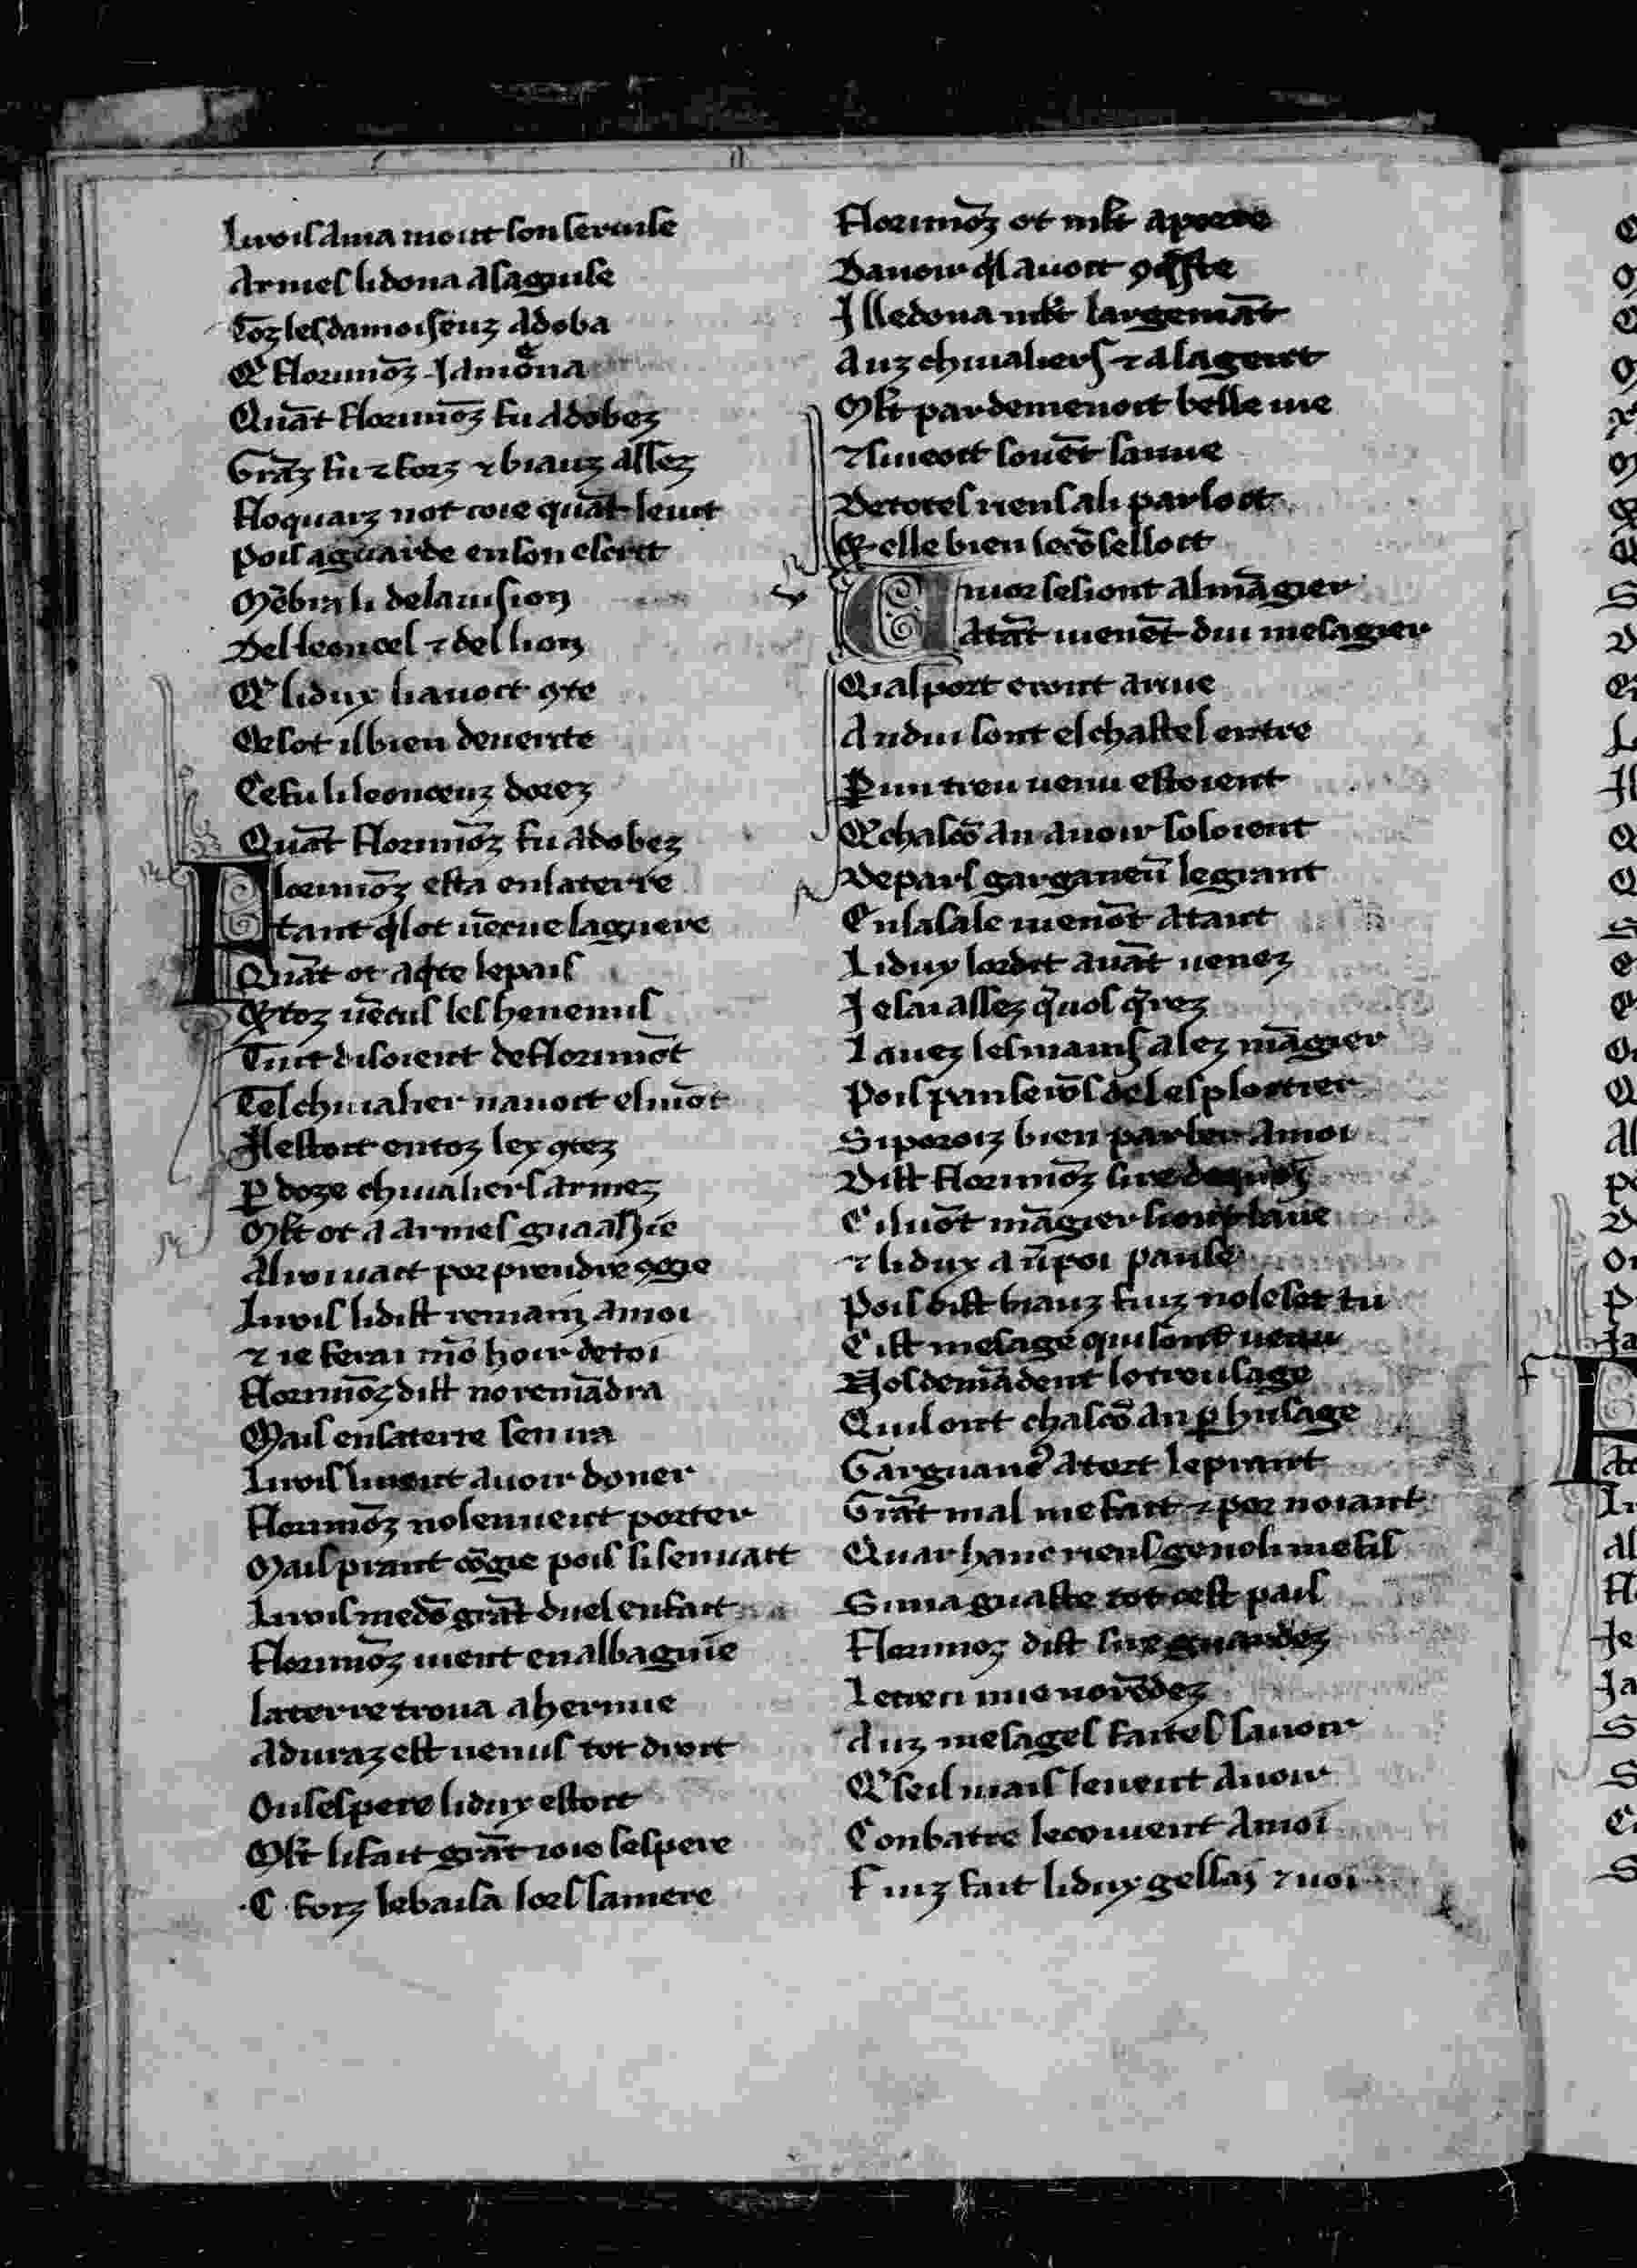 Li rois ama mout son seruise
Armes li dona a sa guise
Toz les damoiseuz adoba
Et florimōz i amena
Quāt florimōz fu adobez
Grāz fu ⁊ forz ⁊ biauz assez
Floquarz not ioie quāt le uit
Pois aguarde en son escrit
Mēbra li de la uision
Del leoncel ⁊ del lion
Q̄ li dux li auoit ꝯte
Or sot il bien de uerite
Ce fu li leonceuz dorez
Quāt florimōz fu adobez
Florimōz esta en la terre
Tant q̄l ot uēcue la guere
Quāt ot aq̇te le pais
Et toz uēcus les henemis
Tuit disoient de florimōt
Tel chiualier nauoit el mōt
Il estoit en toz lex ꝯtez
Ꝑ doze chiualiers armez
Ml̄t ot a armes guaaignie
Al roi uait por prendre ꝯgie
Li rois li dist remain a moi
⁊ ie ferai mō hoir de toi
Florimōz dist no remādra
Mais en sa terre sen ua
Li rois li uout auoir doner
Florimōz nolen ueut porter
Mais prant cōgie pois si sen uait
Li rois medō grāt duel en fait
Florimōz uient en albaguie
La terre troua a hermie
A duraz est uenus tot droit
Ou ses pere li dux estoit
Ml̄t li fait grāt ioie ses pere
.C. forz le baisa loes sa mere
Florimōz ot ml̄t aporte
Dauoir q̄l auoit ꝯq̇ste
Il le dona ml̄t largemāt
Auz chiualiers ⁊ a la gent
Ml̄t par demenoit belle uie
⁊ siueoit souēt samie
De totes riens a li parloit
Et elle bien lo cōselloit
Un ior sesiont al māgier
Atāt uienēt dui mesagier
Qui al port eront ariue
Andui sont el chastel entre
Ꝑ un treu uenu estoient
Q̄ chascō an auoir soloient
De pars garganeū le giant
En la sale uienōt atant
Li dux lor dit auāt uenez
Ie sai assez q̄ uos q̄rez
Lauez les mains alez māgier
Pois panserōs del esploitier
Si poroiz bien parler a moi
Dist florimōz sire de quoi
Cil uōt māgier si ont laue
⁊ li dux a ū poi panse
Pois dist biauz fiuz nole sez tu
Cist mesage qui sont uenu
Nos demādent lo treusage
Quil ont chascō an ꝑ husage
Garguane᷒ a tort le prant
Grāt mal me fait ⁊ por noiant
Quar hanc riens ge no li mesfis
Si ma guaste tot cest pais
Florimoz dist sire guardez
Le treu mie no rēdez
Auz mesages faites sauoir
Q̄ seil mais le ueut auoir
Conbatre le couient a moi
Fiuz fait li dux gessai ⁊ uoi